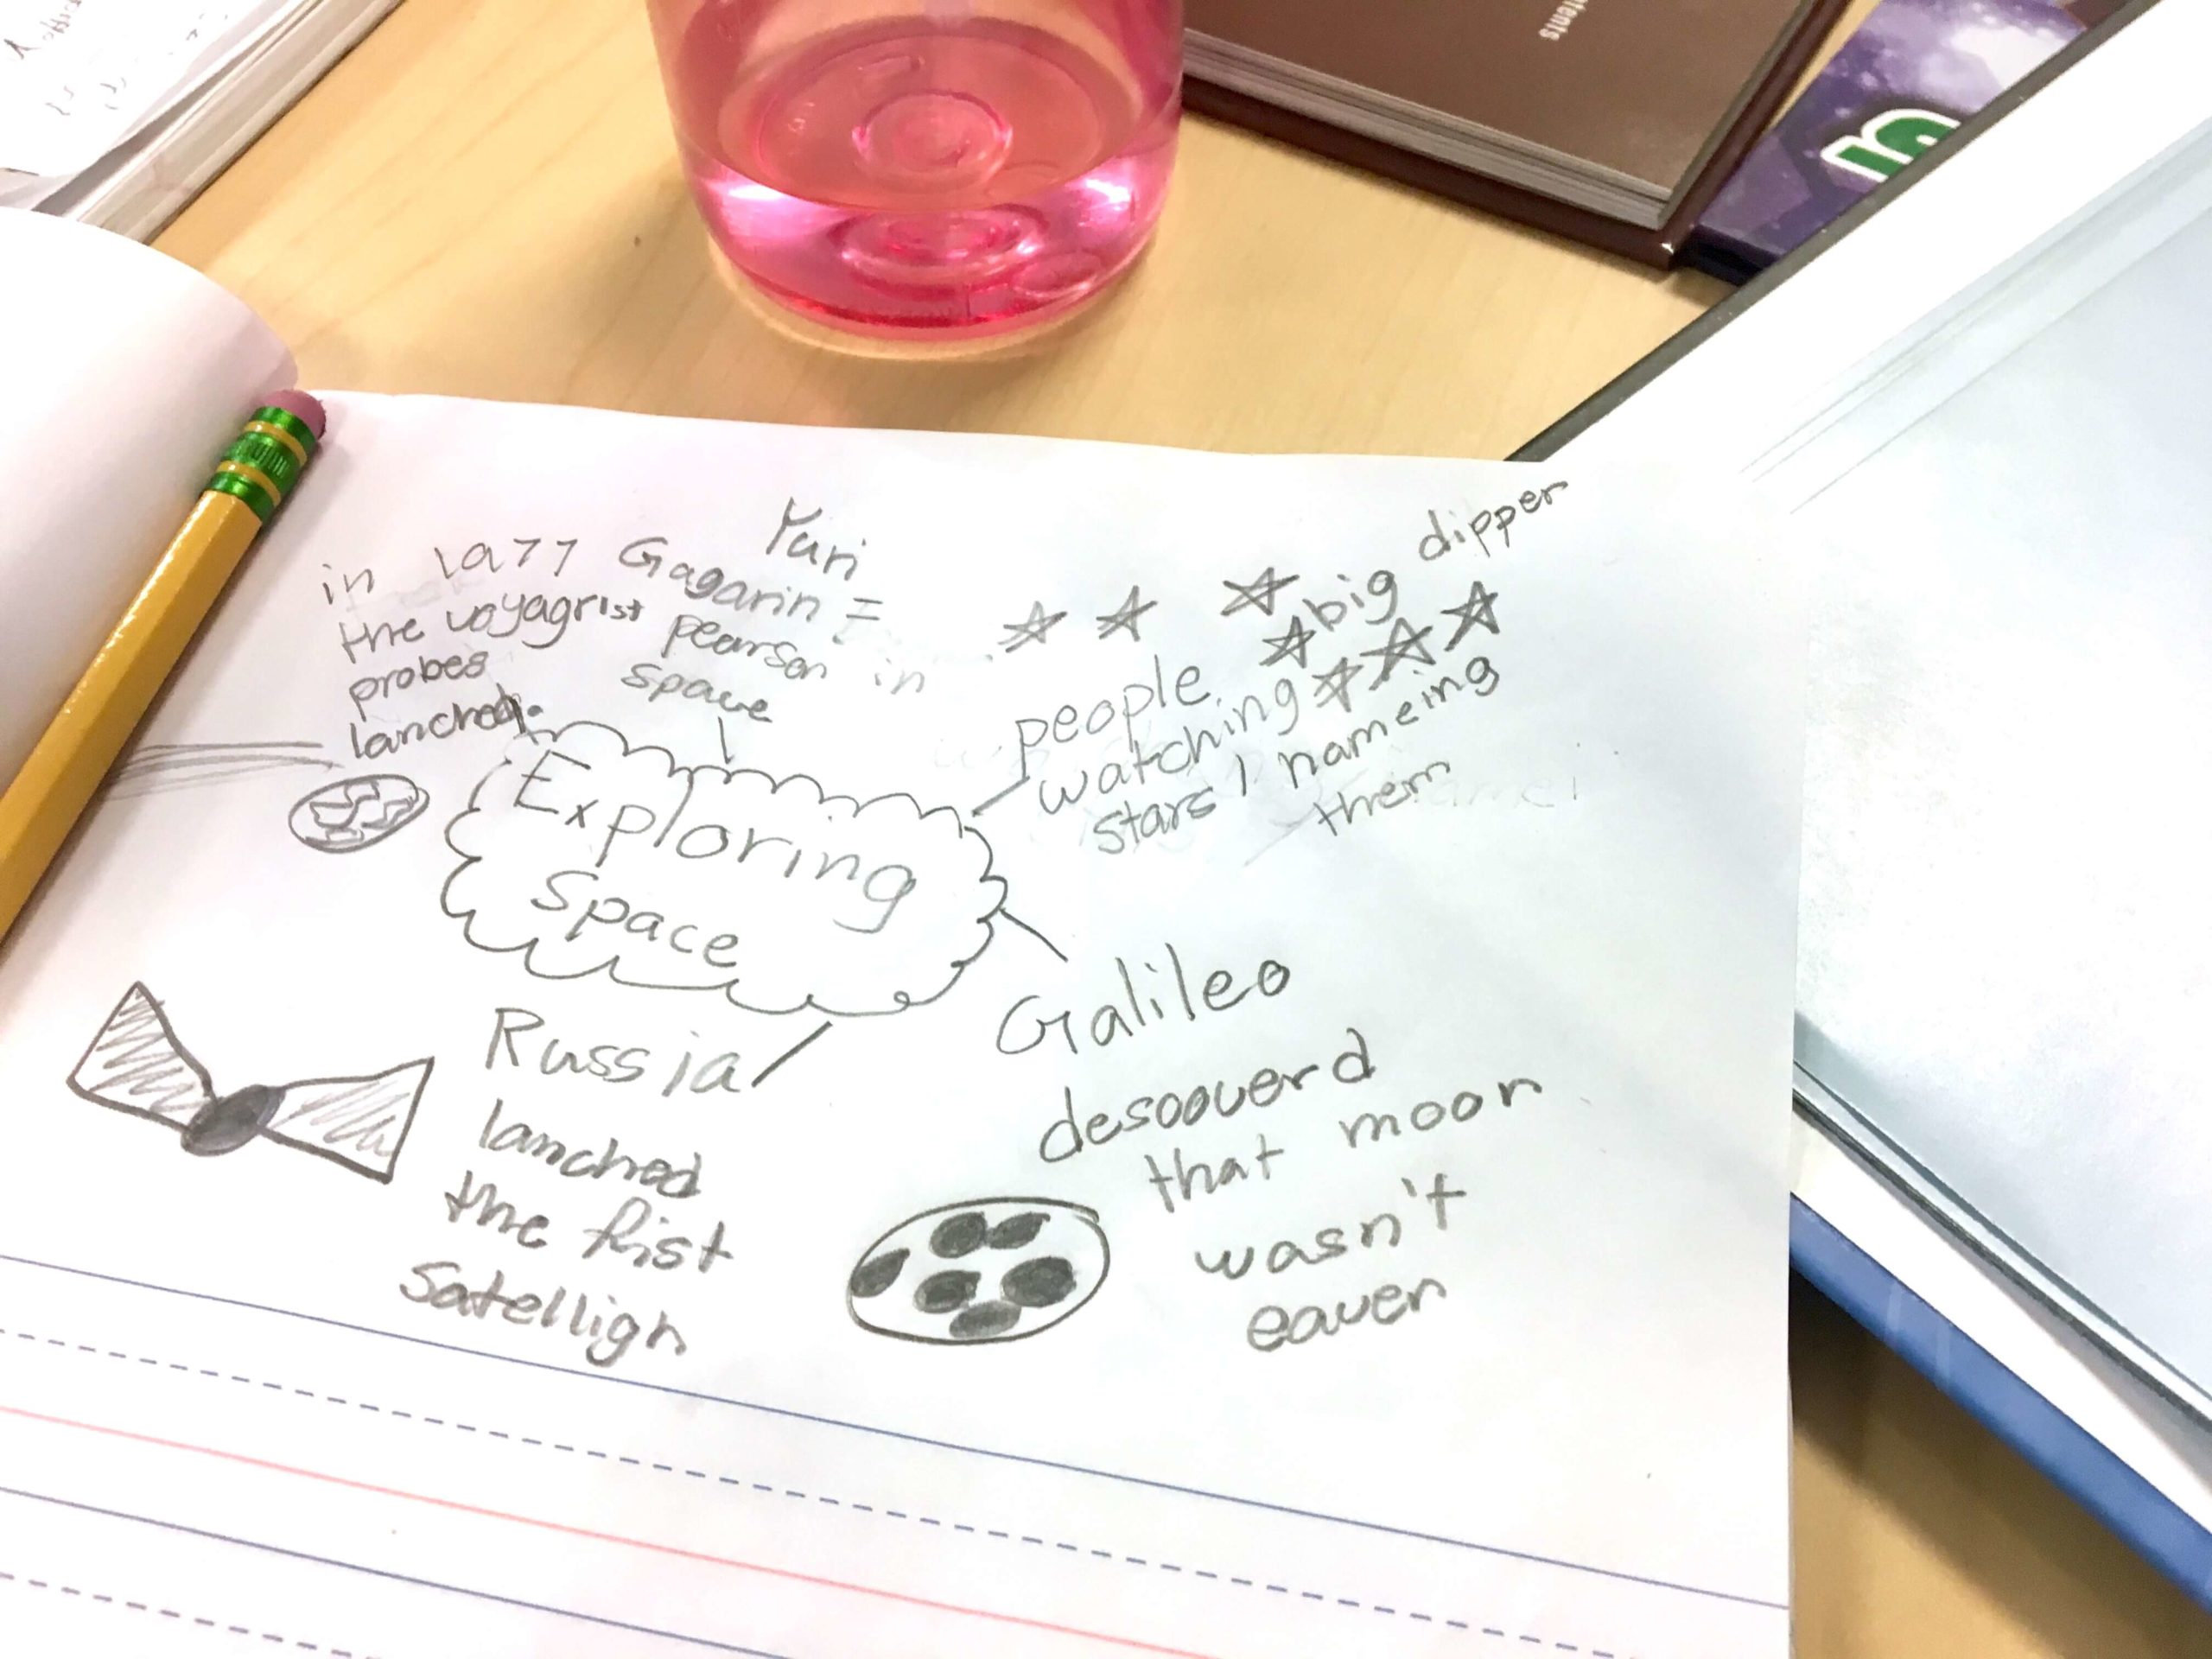 in 1977
the voyagr
probes
lanched.
Yuri
Gagarin =
1st pearson in
space
big dipper
people
watching
stars / nameing
them
Exploring
space
Galileo
desooverd
that moon
wasn't
eaven
Russia
lanched
the fist
satelligh